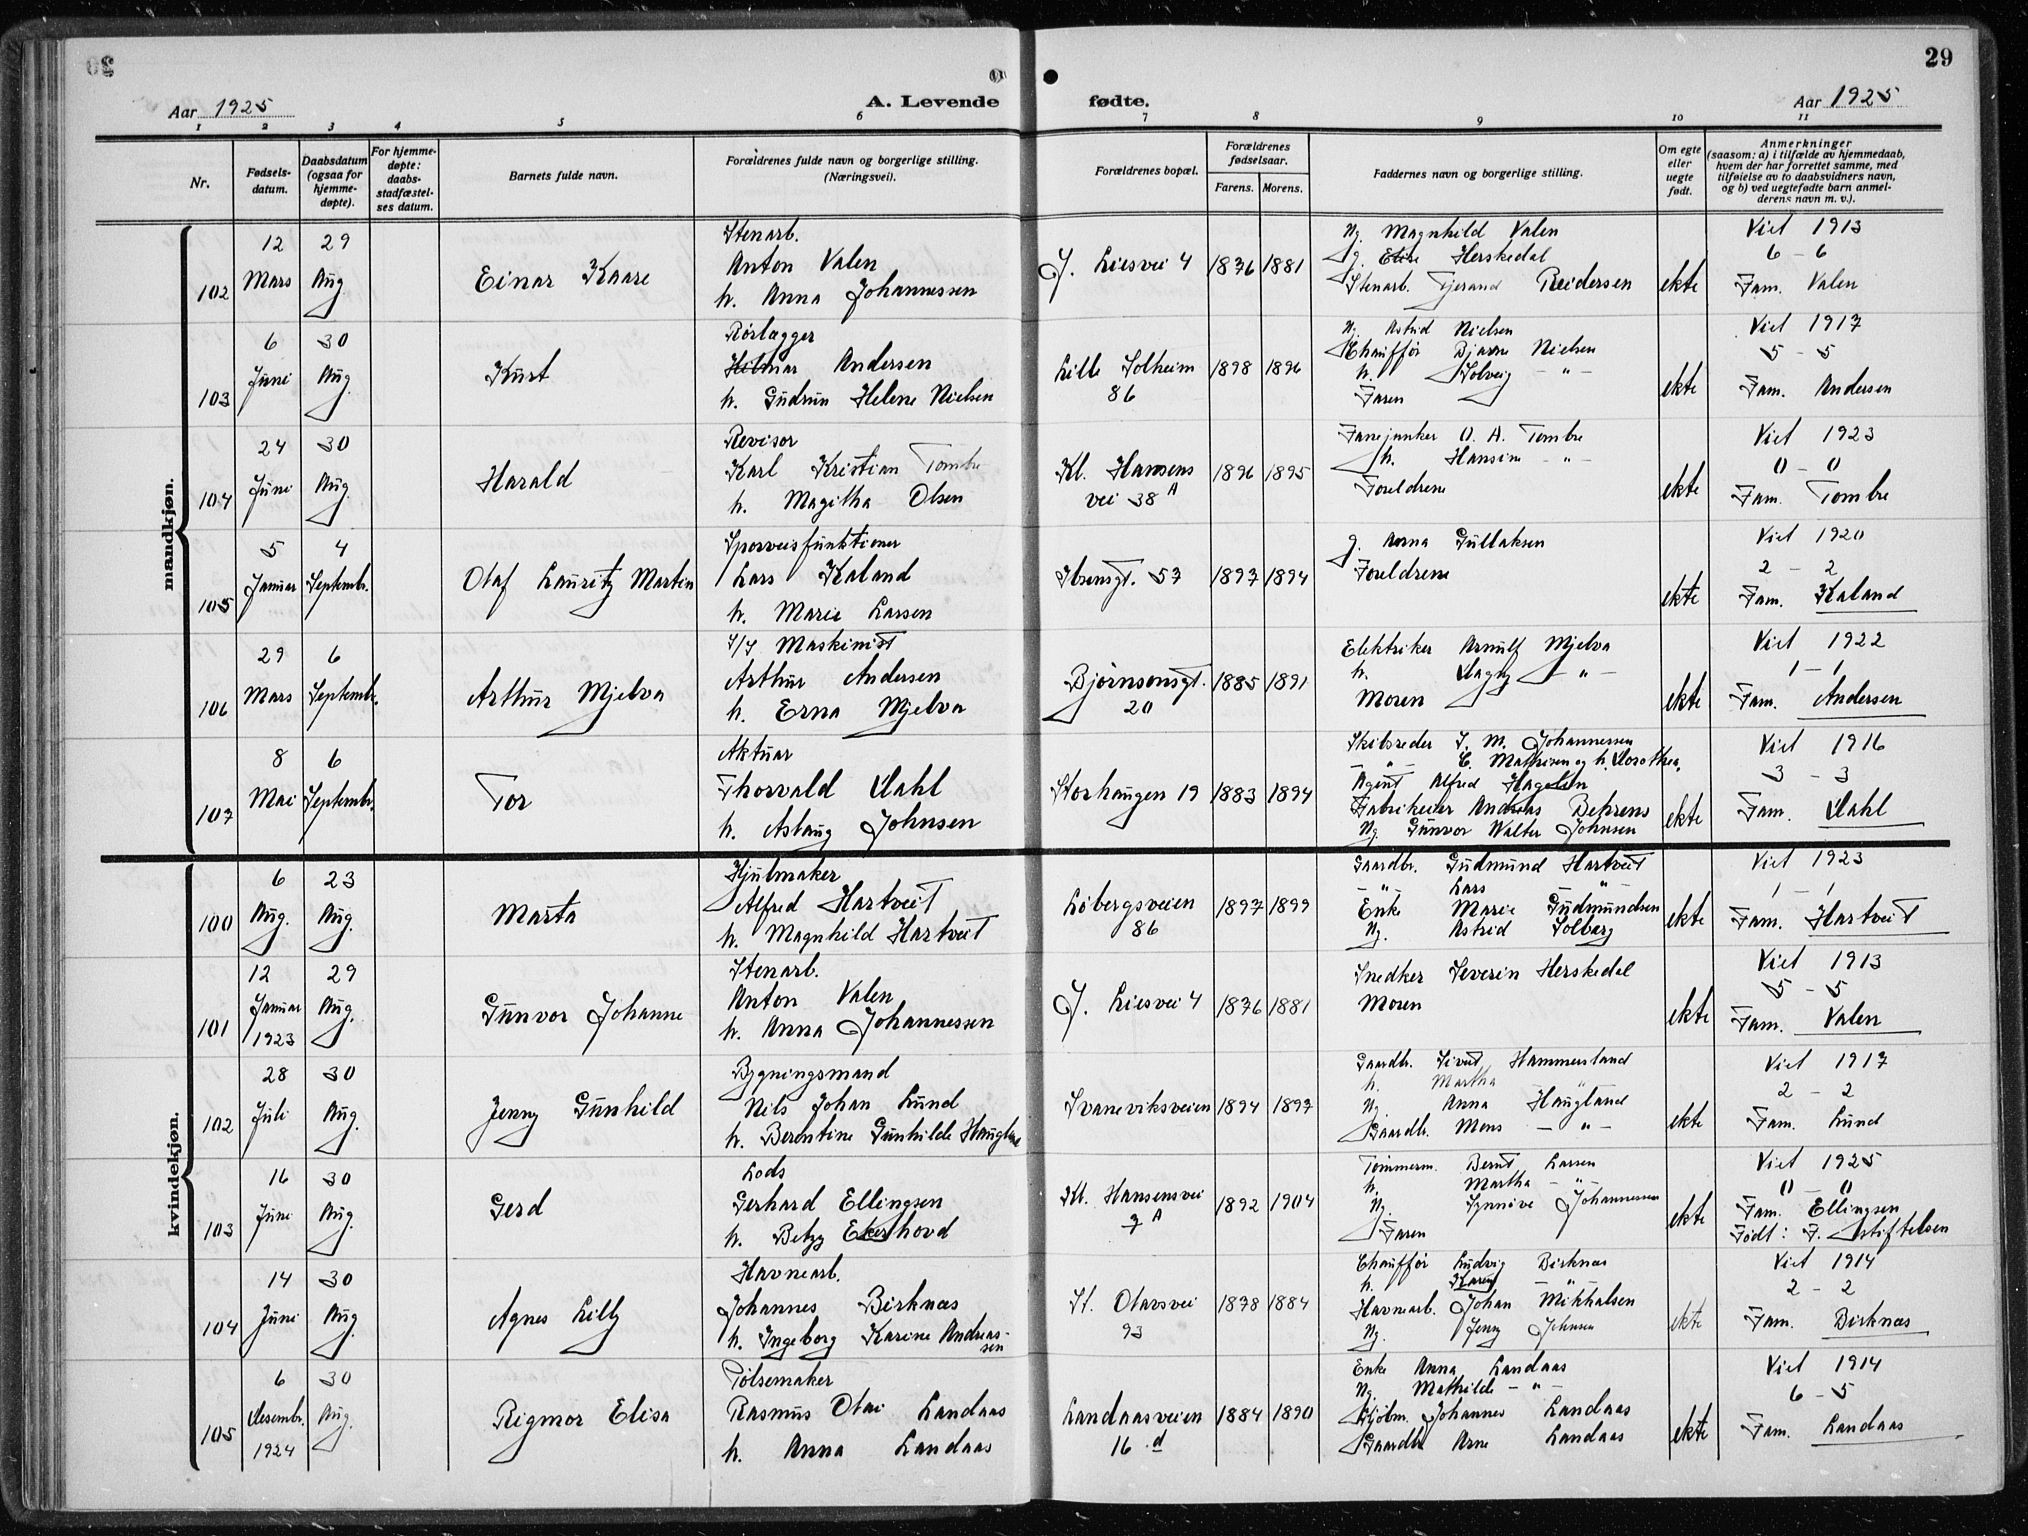 29
Aar 1925
A. Levende fødte.
Aar 1925
1 2 3 4 5 6 7 8 9 10 11
Nr.
Fødsels-
datum.
Daabsdatum
(ogsaa for
hjemme-
døpte).
For hjemme-
døpte:
daabs-
stadfæstel-
ses datum.
Barnets fulde navn.
Forældrenes fulde navn og borgerlige stilling.
(Næringsvei).
Forældrenes bopæl.
Forældrenes
fødselsaar.
Farens. Morens.
Faddernes navn og borgerlige stilling.
Om egte
eller
uegte
født.
Anmerkninger
(saasom: a) i tilfælde av hjemmedaab,
hvem der har forrettet samme, med
tilføielse av to daabsvidners navn,
og b) ved uegtefødte barn anmel-
derens navn m. v.).
mandkjøn.
102
12 Mars
29 Aug.
Einar Kaare
Stenarb.
Anton Valen
h. Anna Johannessen
J. Liesvei 4
1876 1881
Ng. Magnhild Valen
g. Elise Herskedal
Stenarb. Tjerand Reidersen
ekte
Viet 1913
6 - 6
Fam. Valen
103
6 Juni
30 Aug.
Kurt
Rørlægger
Hilmar Andersen
h. Gudrun Helene Nielsen
Lille Solheim
86
1898 1896
Ng. Astrid Nielsen
Chauffør Bjarne Nielsen
h. Solveig - " -
Faren
ekte
Viet 1917
5 - 5
Fam. Andersen
104
24 Juni
30 Aug.
Harald
Revisor
Karl Kristian Tombre
h. Magitha Olsen
Kl. Hansens
vei 38 A
1896 1895
Fanejunker O. A. Tombre
h. Hansine - " -
Foreldrene
ekte
Viet 1923
0 - 0
Fam. Tombre
105
5 Januar
4 Septembr.
Olaf Lauritz Martin
Sporveisfunktionær
Lars Kaland
h. Marie Larsen
Ibsensgt. 57
1897 1894
g. Anna Gullaksen
Foreldrene
ekte
Viet 1920
2 - 2
Fam. Kaland
106
29 Mars
6 Septembr.
Arthur Mjelva
S/S Maskinist
Arthur Andersen
h. Erna Mjelva
Bjørnsonsgt.
20
1885 1891
Elektriker Arnulf Mjelva
h. Dagny - " -
Moren
ekte
Viet 1922
1 - 1
Fam. Andersen
107
8 Mai
6 Septembr.
Tor
Aktuar
Thorvald Dahl
h. Aslaug Johnsen
Storhaugen 19
1883 1894
Skibsreder S. M. Johannessen
- " - C. Mathisen og h. Dorothea.
Agent Alfred Hagelsen
Fabrikeier Andreas Behrens
Ng. Gunvor Walter Johnsen
ekte
Viet 1916
3 - 3
Fam. Dahl
kvindekjøn.
100
6 Aug.
23 Aug.
Marta
Hjulmaker
Alfred Hartveit
h. Magnhild Hartveit
Løbergsveien
86
1897 1899
Gaardbr. Gudmund Hartveit
- " - Lars "
Enke Marie Gudmundsen
Ng. Astrid Solberg
ekte
Viet 1923
1 - 1
Fam. Hartveit
101
12 Januar
1923
29 Aug.
Gunvor Johanne
Stenarb.
Anton Valen
h. Anna Johannessen
J. Liesvei 4
1876 1881
Snedker Severin Herskedal
Moren
ekte
Viet 1913
5 - 5
Fam. Valen
102
28 Juli
30 Aug.
Jenny Gunhild
Bygningsmand
Nils Johan Lund
h. Berentine Gunhilde Haugland
Svaneviksveien
1894 1897
Gaardbr. Sivert Hammersland
h. Martha "
Ng. Anna Haugland
Gaardbr. Mons - " -
ekte
Viet 1917
2 - 2
Fam. Lund
103
16 Juni
30 Aug.
Gerd
Lods
Gerhard Ellingsen
h. Betzy Ekerhovd
Kl. Hansensvei
7 A
1892 1904
Tømmerm. Bernt Larsen
h. Martha - " -
Ng. Synnøve Johannessen
Faren
ekte
Viet 1925
0 - 0
Fam. Ellingsen
Født: F. Stiftelsen
104
14 Juni
30 Aug.
Agnes Lilly
Havnearb.
Johannes Birknæs
h. Ingeborg Karine Andreas-
sen
St. Olavsvei
93
1878 1884
Chauffør Ludvig Birknæs
h. Karen - " -
Havnearb. Johan Mikkalsen
Ng. Jenny Johnsen
ekte
Viet 1914
2 - 2
Fam. Birknæs
105
6 Desembr.
1924
30 Aug.
Rigmor Elisa
Pølsemaker
Rasmus Olai Landaas
h. Anna Landaas
Landaasveien
16 d
1884 1890
Enke Anna Landaas
Ng. Mathilde - " -
Kjøbm. Johannes Landaas
Gaardbr. Arne Landaas
ekte
Viet 1914
6 - 5
Fam. Landaas